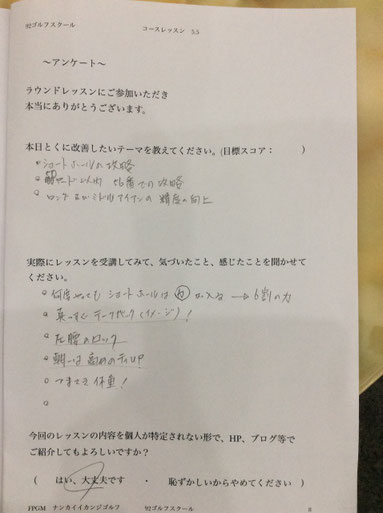 92ゴルフスクール
コースレッスン 5.5
〜アンケート〜
ラウンドレッスンにご参加いただき
本当にありがとうございます。
本日とくに改善したいテーマを教えてください。(目標スコア： )
ショートホールの攻略
以内 での攻略
ロング ミドルアイアンの精度の向上
実際にレッスンを受講してみて、気づいたこと、感じたことを聞かせて
ください。
何度やっても ショートホールは 力が入る → 6割の力
真っすぐテークバック(イメージ)!
左腰のロック
高めのティUP
つま先体重!
今回のレッスンの内容を個人が特定されない形で、HP、ブログ等で
ご紹介してもよろしいですか？
( はい、大丈夫です ・ 恥ずかしいからやめてください )
JPGM ナンカイイカンジゴルフ 92ゴルフスクール 8